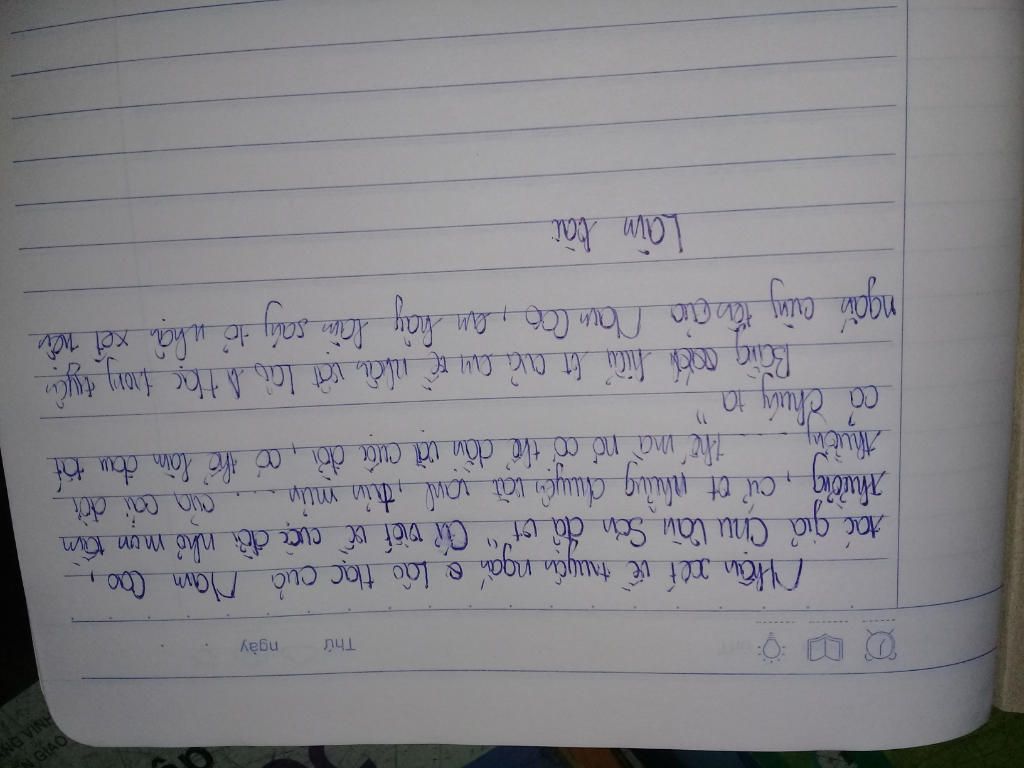 Thứ ngày
Nhận xét về truyện ngắn Lão Hạc của Nam Cao,
tác giả Chu Văn Sơn đã vt "Cứ viết về cuộc đời nhỏ mọn tầm
thường, cứ vt những chuyện vặt vãnh, thìn mìn ..... của cái đời
thường ..... thế mà nó có thể dẫn vời cuộc đời, có thể làm đau tất
cả chúng ta"
Bằng hiểu bt của em về nhân vật Lão Hạc trong truyện
ngắn cùng tên của Nam Cao, em hãy làm sáng tỏ nhận xét trên
Làm bài